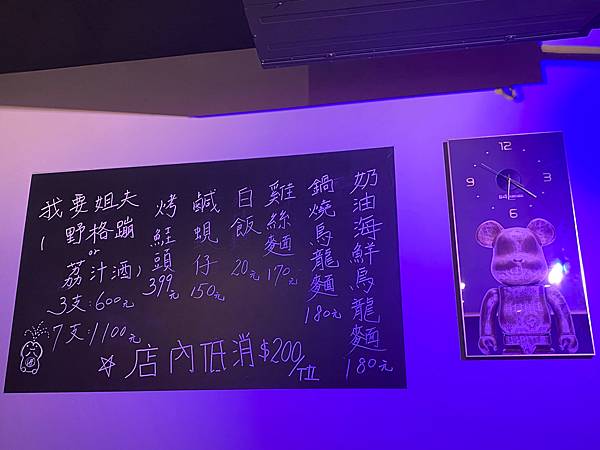 奶油海鮮烏龍麵 180元
鍋燒烏龍麵 180元
雞絲麵 170元
白飯 20元
鹹蜆仔 150元
烤鮭頭 399元
我要姐夫
(野格蹦
or
荔汁酒)
3支:600元
7支:1100元
☆店內低消$200/位
12
3
6
9